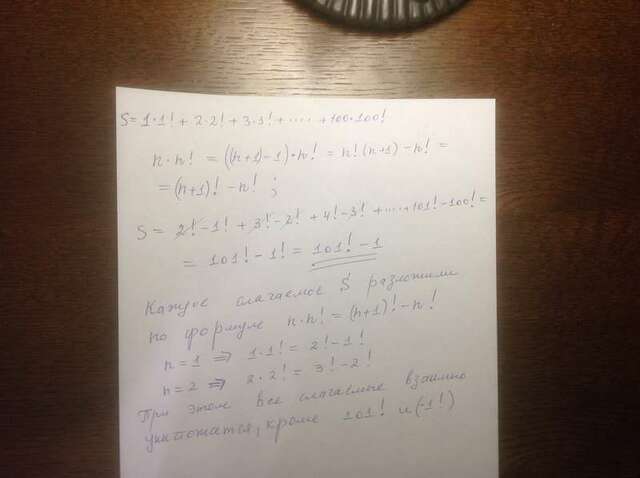 S = 1·1! + 2·2! + 3·3! + ..... + 100·100!
n·n! = ((n+1)-1)·n! = n!(n+1) - n! =
= (n+1)! - n! ;
S = 2! - 1! + 3! - 2! + 4! - 3! + ..... + 101! - 100! =
= 101! - 1! = 101! - 1
Каждое слагаемое S разложили
по формуле n·n! = (n+1)! - n!
n=1 ⇒ 1·1! = 2! - 1!
n=2 ⇒ 2·2! = 3! - 2!
При этом все слагаемые взаимно
уничтожатся, кроме 101! и (-1!)